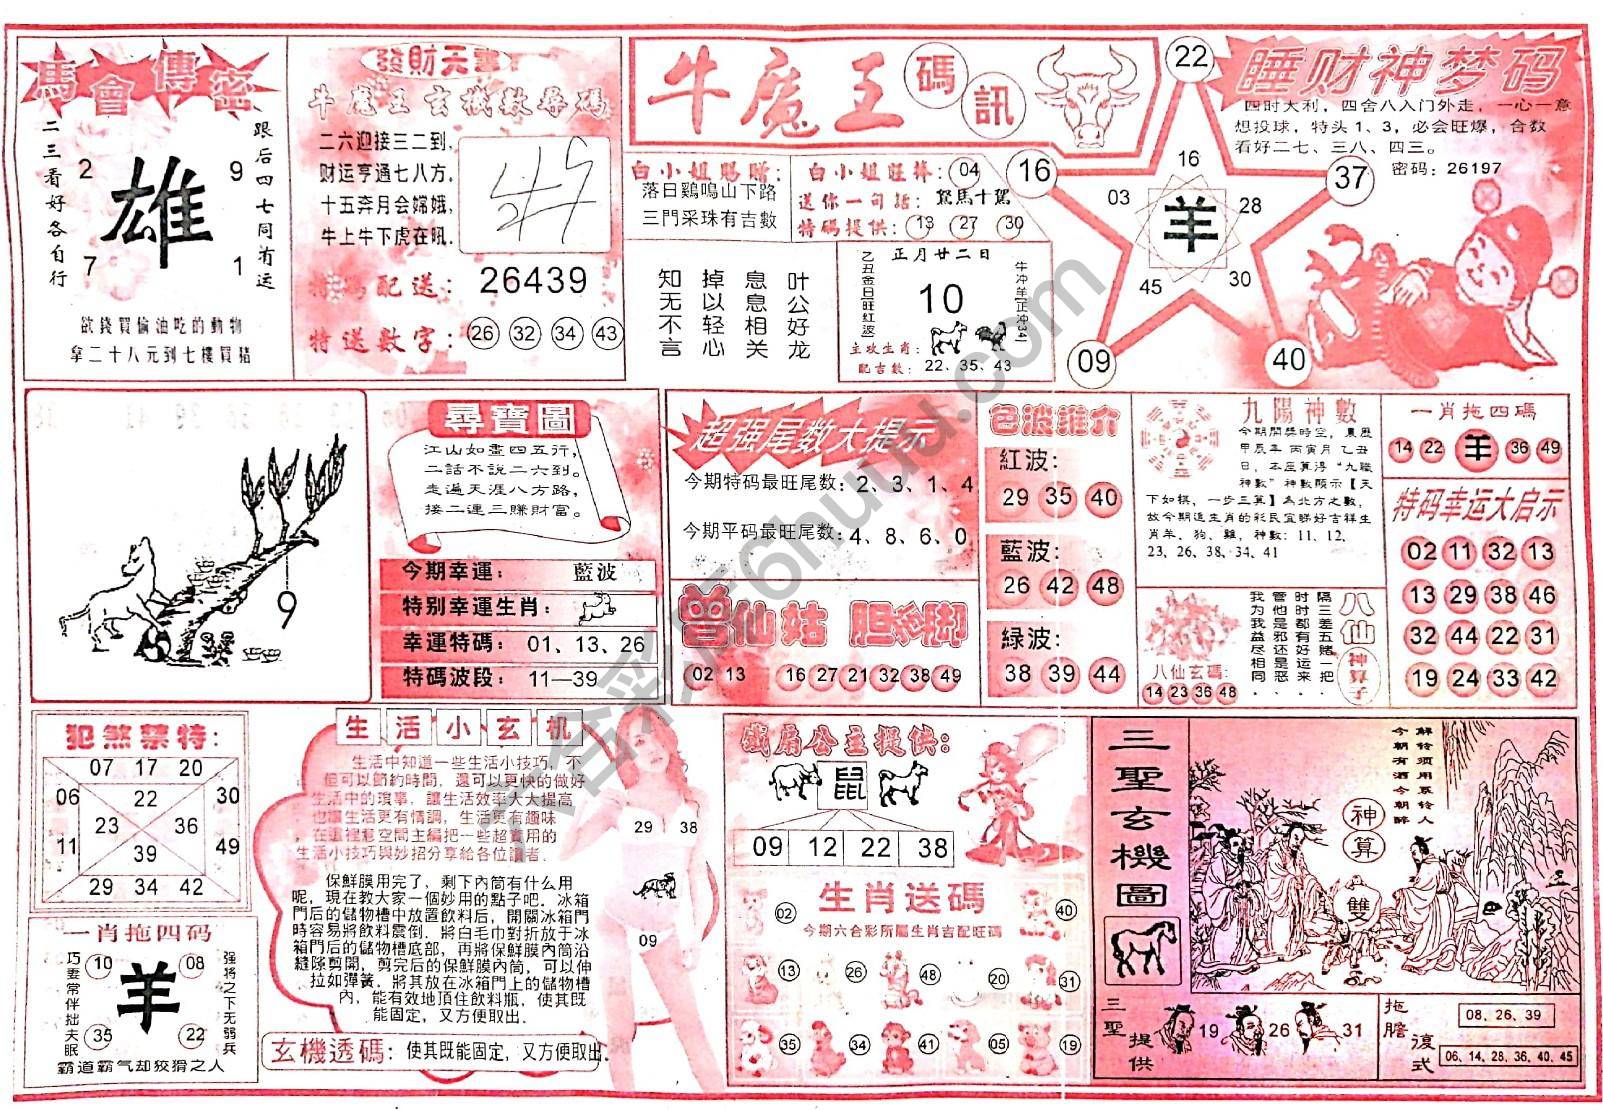 馬會傳密
二三看好各自行
跟后四七同有运
2
9
雄
7
1
欲錢買偷油吃的動物
拿二十八元到七樓買豬
發財天書
牛魔王玄機數尋碼
二六迎接三二到,
财运亨通七八方,
十五奔月会嫦娥,
牛上牛下虎在吼.
特碼配送: 26439
特送數字: 26 32 34 43
牛魔王
碼訊
白小姐賜贈:
落日鷄鳴山下路
三門采珠有吉數
白小姐旺棒: 04
送你一句話: 駑馬十駕
特碼提供: 13 27 30
知无不言
掉以轻心
息息相关
叶公好龙
正月廿二日
乙丑金日旺红波
10
牛冲羊(正冲34)
主攻生肖:
配吉數: 22、35、43
22
16
37
09
40
16
03
28
羊
45
30
睡财神梦码
四时大利，四舍八入门外走，一心一意
想投球，特头1、3，必会旺爆，合数
看好二七、三八、四三。
密码: 26197
9
尋寶圖
江山如畫四五行,
二話不說二六到。
走遍天涯八方路,
接二連三賺財富。
今期幸運: 藍波
特别幸運生肖:
幸運特碼: 01、13、26
特碼波段: 11—39
超强尾数大提示
今期特码最旺尾数: 2、3、1、4
今期平码最旺尾数: 4、8、6、0
曾仙姑 胆拖脚
02 13 16 27 21 32 38 49
色波推介
紅波:
29 35 40
藍波:
26 42 48
緑波:
38 39 44
九陽神數
今期開獎時空，農歷
甲辰年 丙寅月 乙丑
日，本座算得“九職
神數”神數顯示【天
下如棋，一步三算】為北方之數，
故今期追生肖的彩民宜睇好吉祥生
肖羊、狗、雞，神數: 11、12、
23、26、38、34、41
八仙玄碼:
14 23 36 48
我为我益尽相同
管他是邪还是恶
时时都有好运来
隔三差五赌一把
八仙
神算子
一肖拖四碼
14 22 羊 36 49
特码幸运大启示
02 11 32 13
13 29 38 46
32 44 22 31
19 24 33 42
犯煞禁特:
07 17 20
06 22 30
23 36
11 39 49
29 34 42
一肖拖四码
巧妻常伴拙夫眠
10 08
羊
35 22
强将之下无弱兵
霸道霸气却狡猾之人
生活小玄机
生活中知道一些生活小技巧，不
但可以節約時間，還可以更快的做好
生活中的瑣事，讓生活效率大大提高
也讓生活更有情調，生活更有趣味
，在這裡彩空間主編把一些超實用的
生活小技巧與妙招分享給各位讀者.
保鮮膜用完了，剩下內筒有什么用
呢，現在教大家一個妙用的點子吧。冰箱
門后的儲物槽中放置飲料后，開關冰箱門
時容易將飲料震倒. 將白毛巾對折放于冰
箱門后的儲物槽底部，再將保鮮膜內筒沿
縫隊剪開，剪完后的保鮮膜內筒，可以伸
拉如彈簧。將其放在冰箱門上的儲物槽
內，能有效地頂住飲料瓶，使其既
能固定，又方便取出.
玄機透碼: 使其既能固定，又方便取出.
29 38
09
鐵扇公主提供:
鼠
09 12 22 38
生肖送碼
今期六合彩所屬生肖吉配旺碼
02
40
13 26 48 20 31
35 34 41 05 19
三聖玄機圖
今朝有酒今朝醉
解铃须用系铃人
神算
雙
三聖提供
19 26 31
拖膽
08、26、39
復式
06、14、28、36、40、45
六合彩库6huuu.com